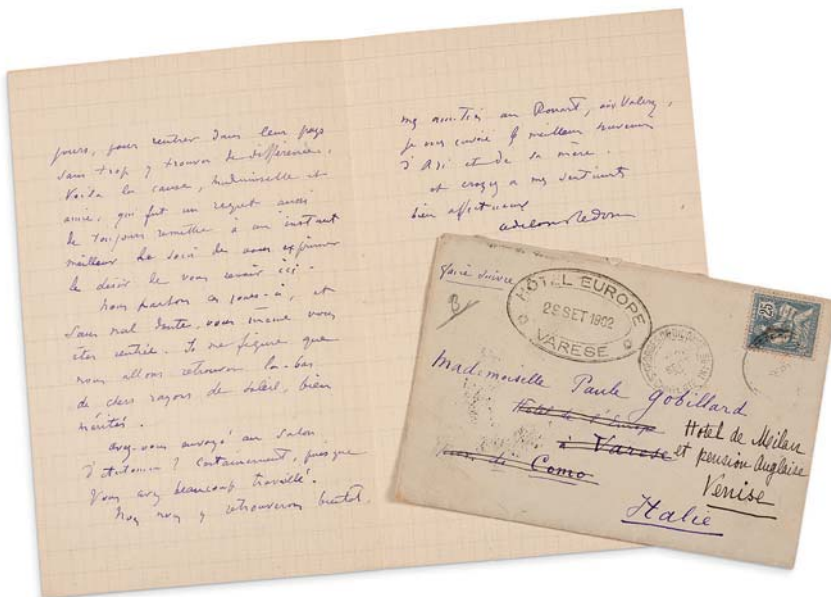 jours, pour rentrer dans leur pays
sans trop y trouver de différence.
Voilà la cause, Mademoiselle et
amie, qui fut un regret aussi
de toujours remettre à un instant
meilleur le soin de vous exprimer
le désir de vous revoir ici.
Nous partons ces jours-ci, et
sans nul doute, vous même vous
êtes rentrée. Je me figure que
nous allons retrouver là-bas
de chers rayons de soleil, bien
mérités.
Avez-vous envoyé au Salon
d'Automne ? Certainement, puisque
vous avez beaucoup travaillé.
Nous nous y retrouverons bientôt.
mes amitiés au Rouart, aux Valery,
je vous envoie le meilleur souvenir
d'Ari et de sa mère.
et croyez a mes sentiments
bien affectueux
odilon Redon
faire suivre
B
HÔTEL EUROPE
29 SET 1902
VARESE
25
Mademoiselle Paule Gobillard
Hotel de l'Europe
à Varese
de Como
Hotel de Milan
et pension Anglaise
Venise
Italie